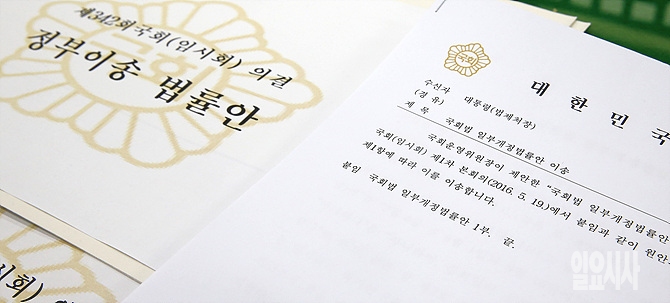 제342회국회(임시회) 의결
정부이송 법률안
국회
대 한 민 국
수신자 대통령(법제처장)
(경 유)
제 목 국회법 일부개정법률안 이송
국회운영위원장이 제안한 "국회법 일부개정법률안
국회(임시회) 제1차 본회의(2016. 5. 19.)에서 붙임과 같이 원안
제1항에 따라 이를 이송합니다.
붙임 국회법 일부개정법률안 1부. 끝.
임시회)
법률안
일요시사